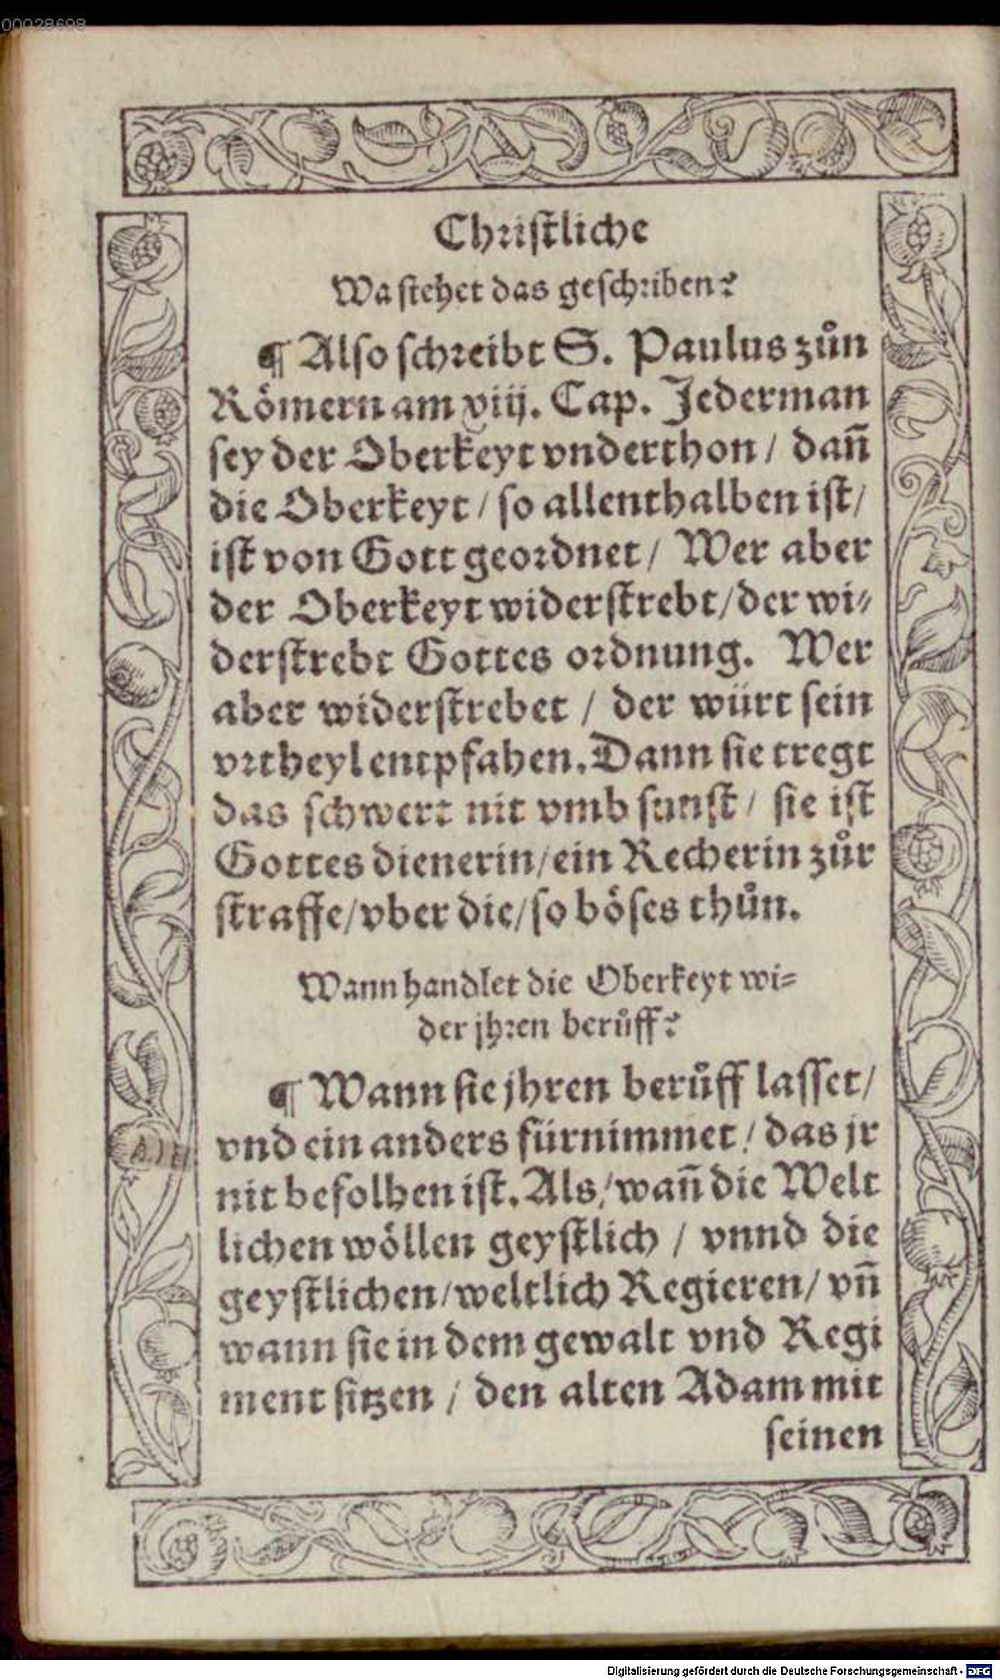 00028698
Christliche
Wa stehet das geschriben?
¶ Also schreibt S. Paulus zůn
Römern am xiij. Cap. Jederman
sey der Oberkeyt vnderthon / dañ
die Oberkeyt / so allenthalben ist /
ist von Gott geordnet / Wer aber
der Oberkeyt widerstrebt / der wi⸗
derstrebt Gottes ordnung. Wer
aber widerstrebet / der würt sein
vrtheyl entpfahen. Dann sie tregt
das schwert nit vmb sunst / sie ist
Gottes dienerin / ein Recherin zůr
straffe / vber die / so böses thůn.
Wann handlet die Oberkeyt wi⸗
der jhren berůff?
¶ Wann sie jhren berůff lasset /
vnd ein anders fürnimmet / das jr
nit befolhen ist. Als / wañ die Welt
lichen wöllen geystlich / vnnd die
geystlichen / weltlich Regieren / vñ
wann sie in dem gewalt vnd Regi
ment sitzen / den alten Adam mit
seinen
Digitalisierung gefördert durch die Deutsche Forschungsgemeinschaft - DFG